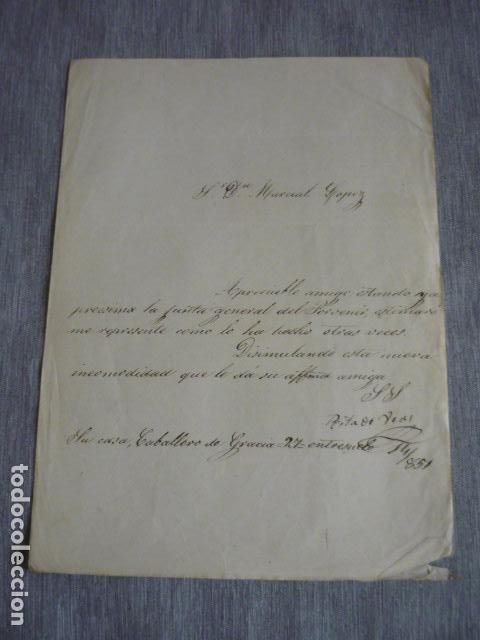 S.r D.n Marcial Lopez
Apreciable amigo estando ya
procsima la junta general del Porvenir, estimaré
me represente como lo ha hecho otras veces.
Disimulando esta nueva
incomodidad que le dá su affma amiga
SS
Rita de
Su casa, Caballero de Gracia 27 entresuelo
851
todocoleccion.net